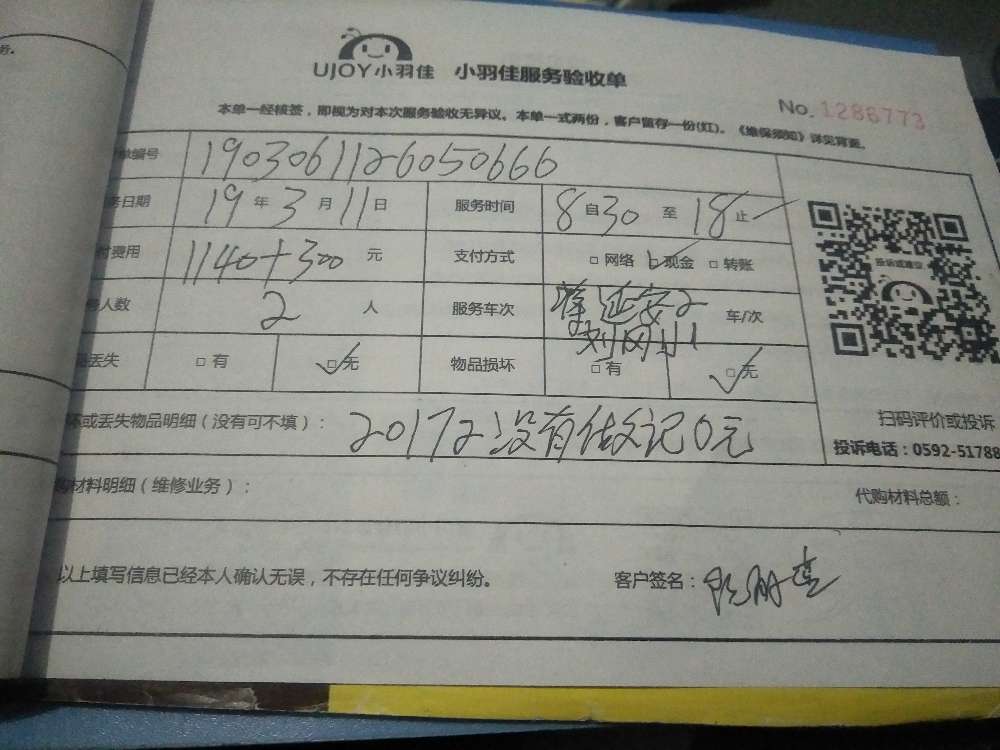 务。
UJOY小羽佳 小羽佳服务验收单
No. 1286773
本单一经核签，即视为对本次服务验收无异议。本单一式两份，客户留存一份(红)。《维保须知》详见背面。
单编号 1903061126050666
务日期 19 年 3 月 11 日 服务时间 8 自 30 至 18 止
付费用 1140+300 元 支付方式 □ 网络 □ 现金 □ 转账
人数 2 人 服务车次 延安2 车/次
刘网山1
丢失 □ 有 □ 无 物品损坏 □ 有 □ 无
投诉或建议
扫码评价或投诉
投诉电话：0592-51788
坏或丢失物品明细（没有可不填）： 20172没有做记0元
购材料明细（维修业务）： 代购材料总额：
以上填写信息已经本人确认无误，不存在任何争议纠纷。 客户签名：